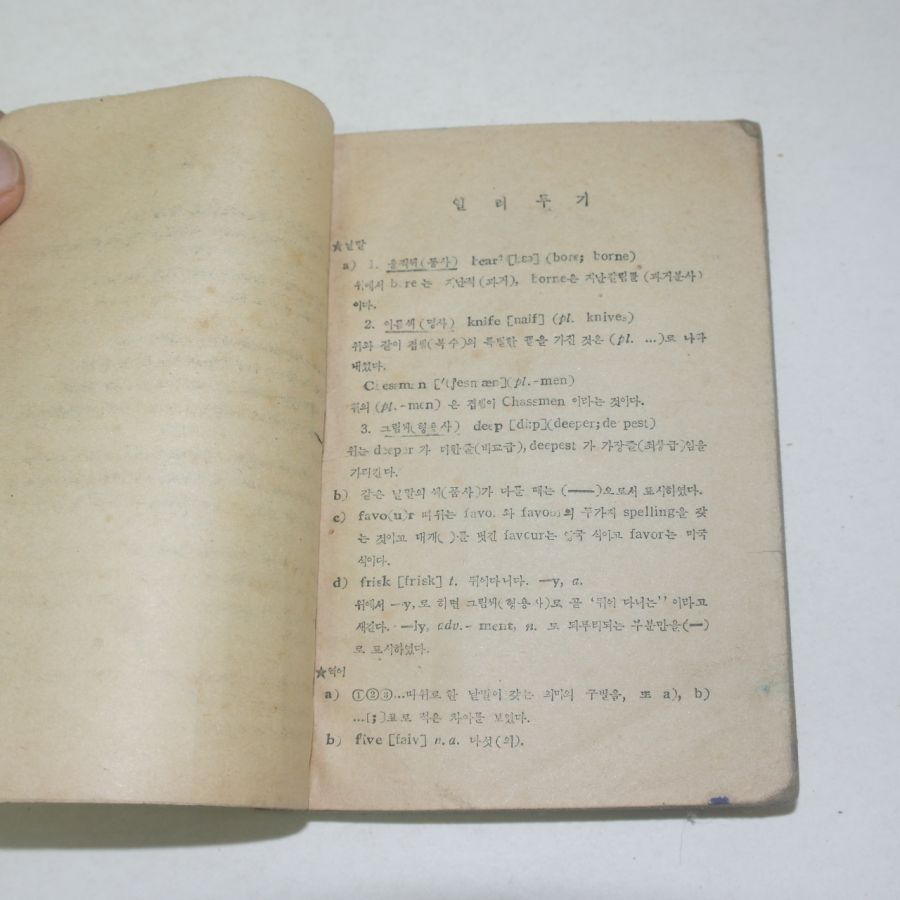 일 러 두 기
★낱말
a) 1. 움직씨(동사) bear² [bɛə] (bore; borne)
위에서 bore는 지난적(과거), borne은 지난길림꼴(과거분사)
이다.
2. 이름씨(명사) knife [naif] (pl. knives)
위와 같이 겹셈(복수)의 특별한 끝을 가진 것은 (pl. ...)로 나타
내었다.
[ˈtʃesmæn](pl.-men)
위의 (pl.-men) 은 겹셈이 Chassmen 이라는 것이다.
3. 그림씨(형용사) deep [di:p](deeper; deepest)
위는 deeper 가 더한줄(비교급), deepest 가 가장줄(최상급)임을
가리킨다.
b) 같은 낱말의 씨(품사)가 다를 때는 (——)으로서 표시하였다.
c) favo(u)r 따위는 favor 와 favour의 두가지 spelling을 갖
는 것이고 대개( )를 벗긴 favour는 영국 식이고 favor는 미국
식이다.
d) frisk [frisk] t. 뛰어다니다. —y, a.
위에서 —y,로 하면 그림씨(형용사)로 곧 ‘뛰어 다니는”이라고
새긴다. —ly, adv. - ment, n. 로 되푸리되는 부분만을(—)
로 표시하였다.
★역어
a) ①②③...따위로 한 낱말이 갖는 의미의 구별을, 또 a), b)
...[;]표로 적은 차이를 보았다.
b) five [faiv] n. a. 다섯(의).